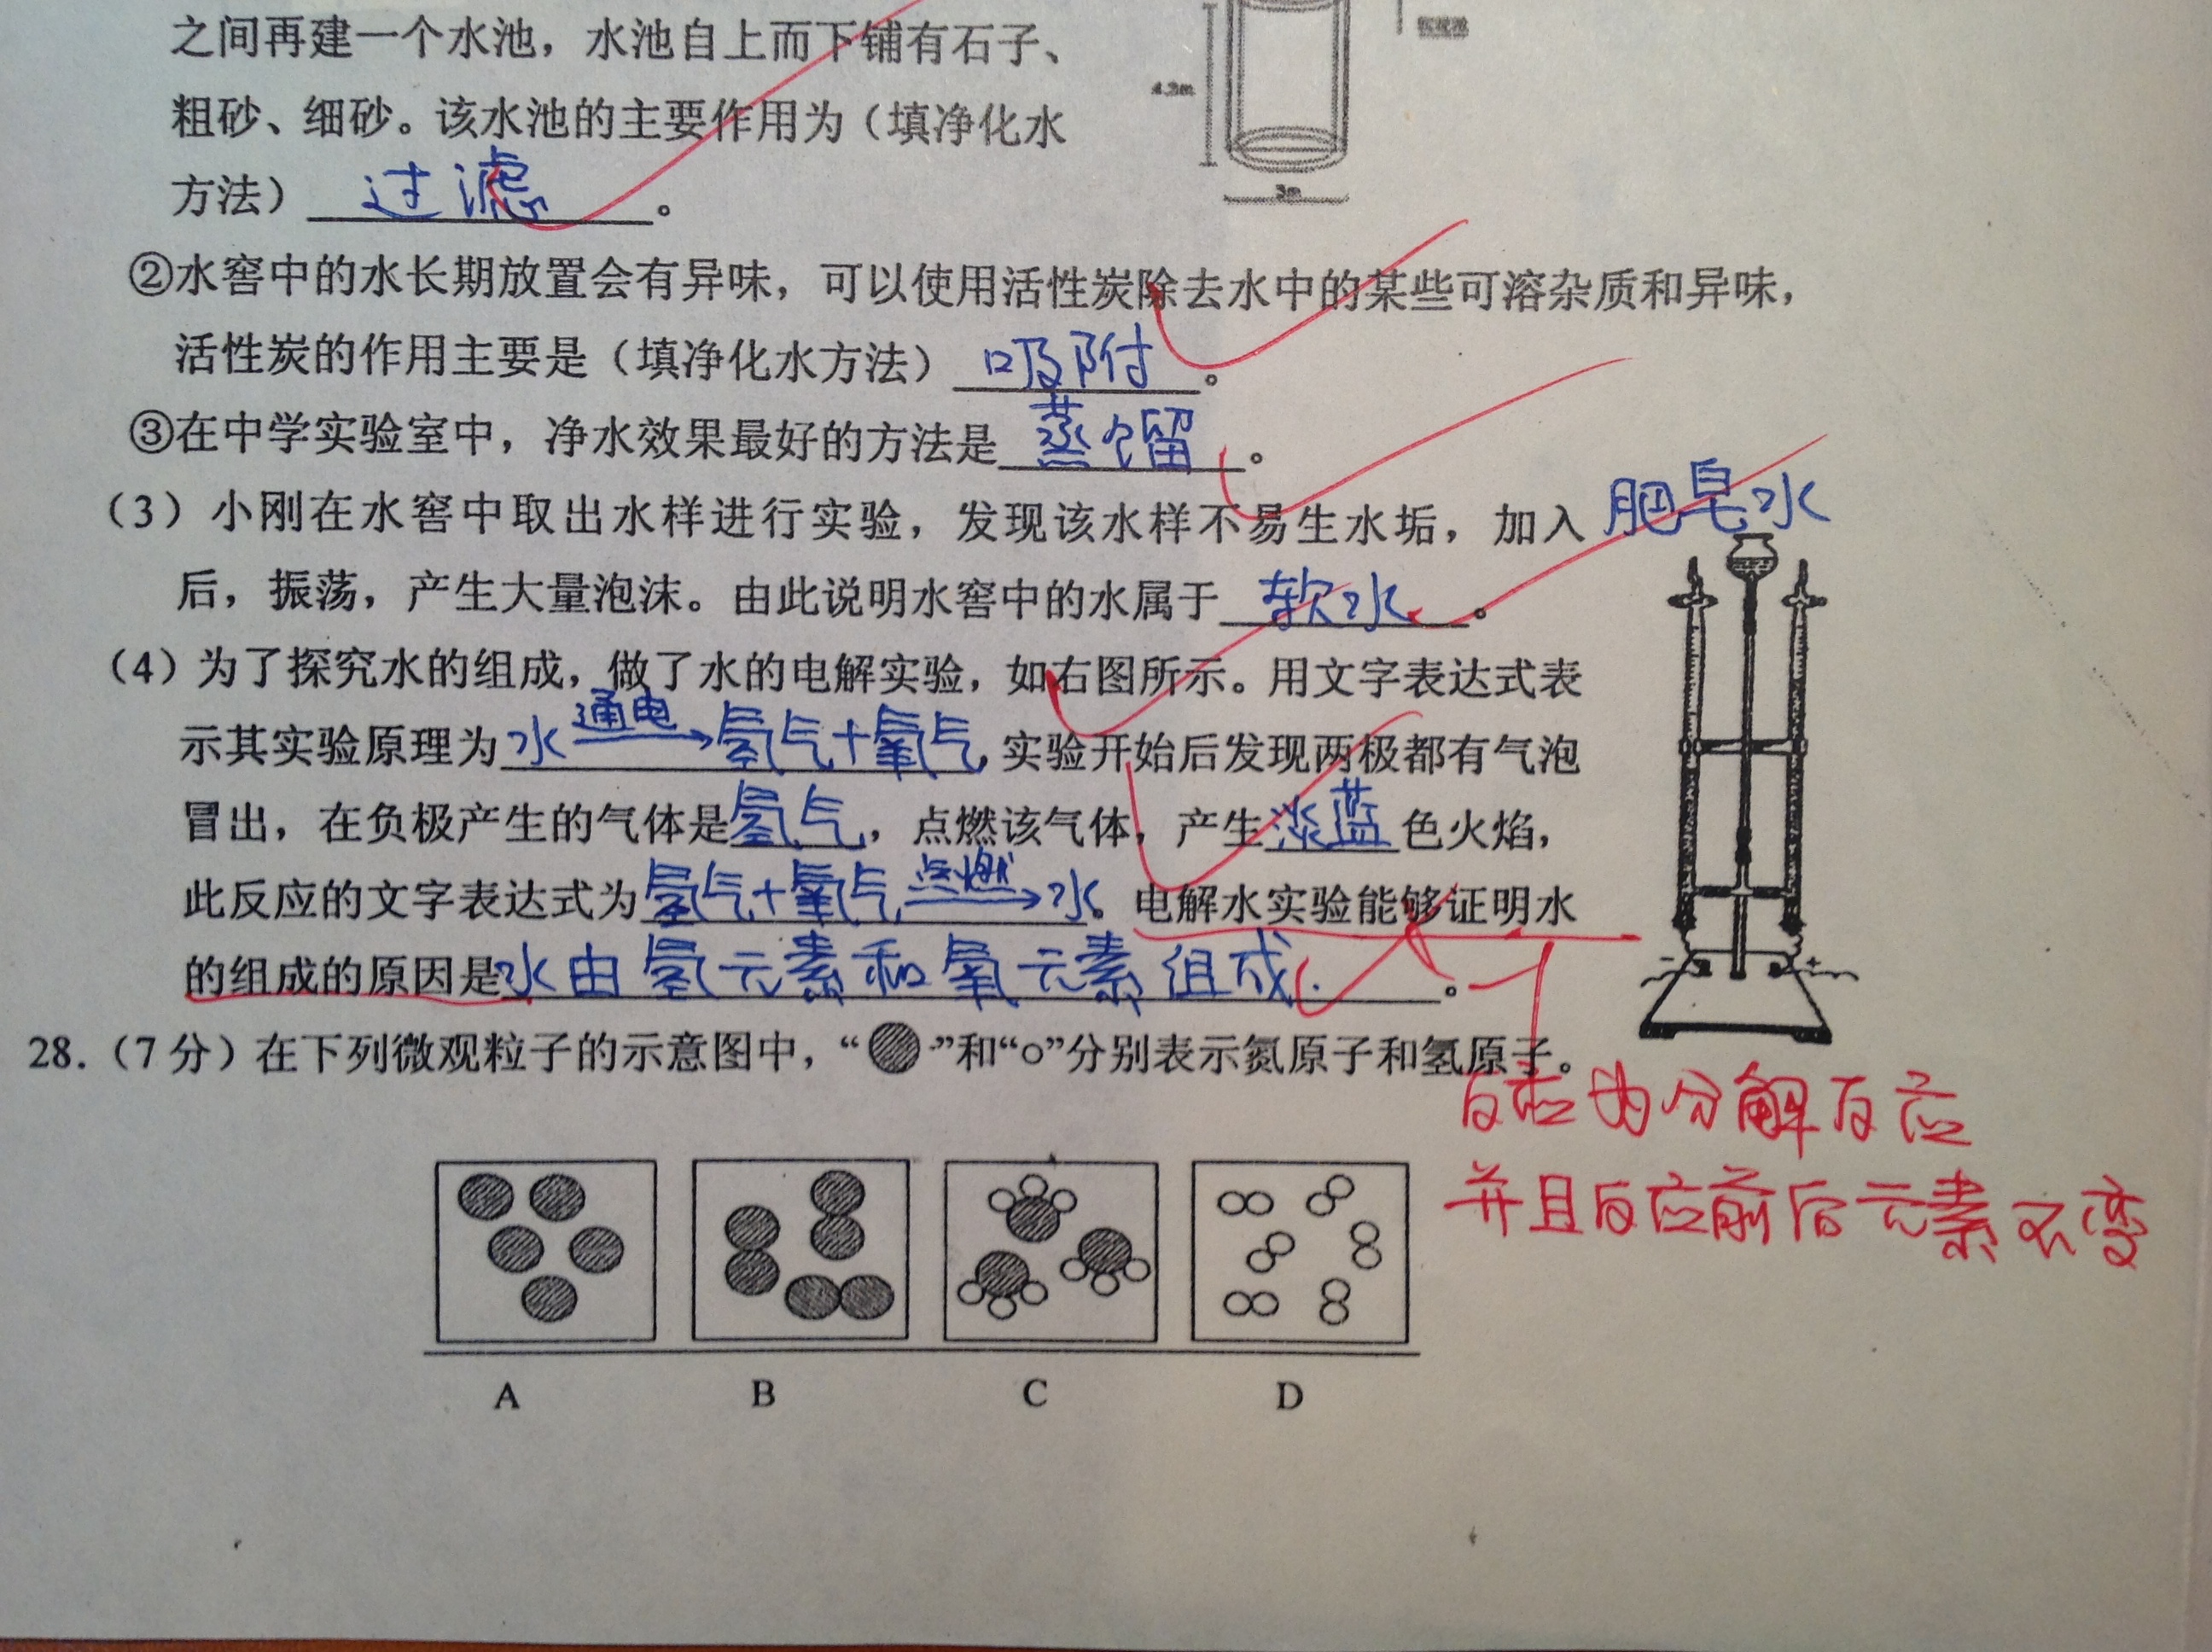 之间再建一个水池，水池自上而下铺有石子、
4.2m
粗砂、细砂。该水池的主要作用为（填净化水
方法）过滤。
3m
②水窖中的水长期放置会有异味，可以使用活性炭除去水中的某些可溶杂质和异味，
活性炭的作用主要是（填净化水方法）吸附。
③在中学实验室中，净水效果最好的方法是蒸馏。
（3）小刚在水窖中取出水样进行实验，发现该水样不易生水垢，加入肥皂水
后，振荡，产生大量泡沫。由此说明水窖中的水属于软水。
（4）为了探究水的组成，做了水的电解实验，如右图所示。用文字表达式表
通电
示其实验原理为水→氢气+氧气，实验开始后发现两极都有气泡
冒出，在负极产生的气体是氢气，点燃该气体，产生淡蓝色火焰，
点燃
此反应的文字表达式为氢气+氧气→水。电解水实验能够证明水
的组成的原因是水由氢元素和氧元素组成.。
- +
28.（7分）在下列微观粒子的示意图中，“”和“○”分别表示氮原子和氢原子。
反应为分解反应
并且反应前后元素不变
A B C D